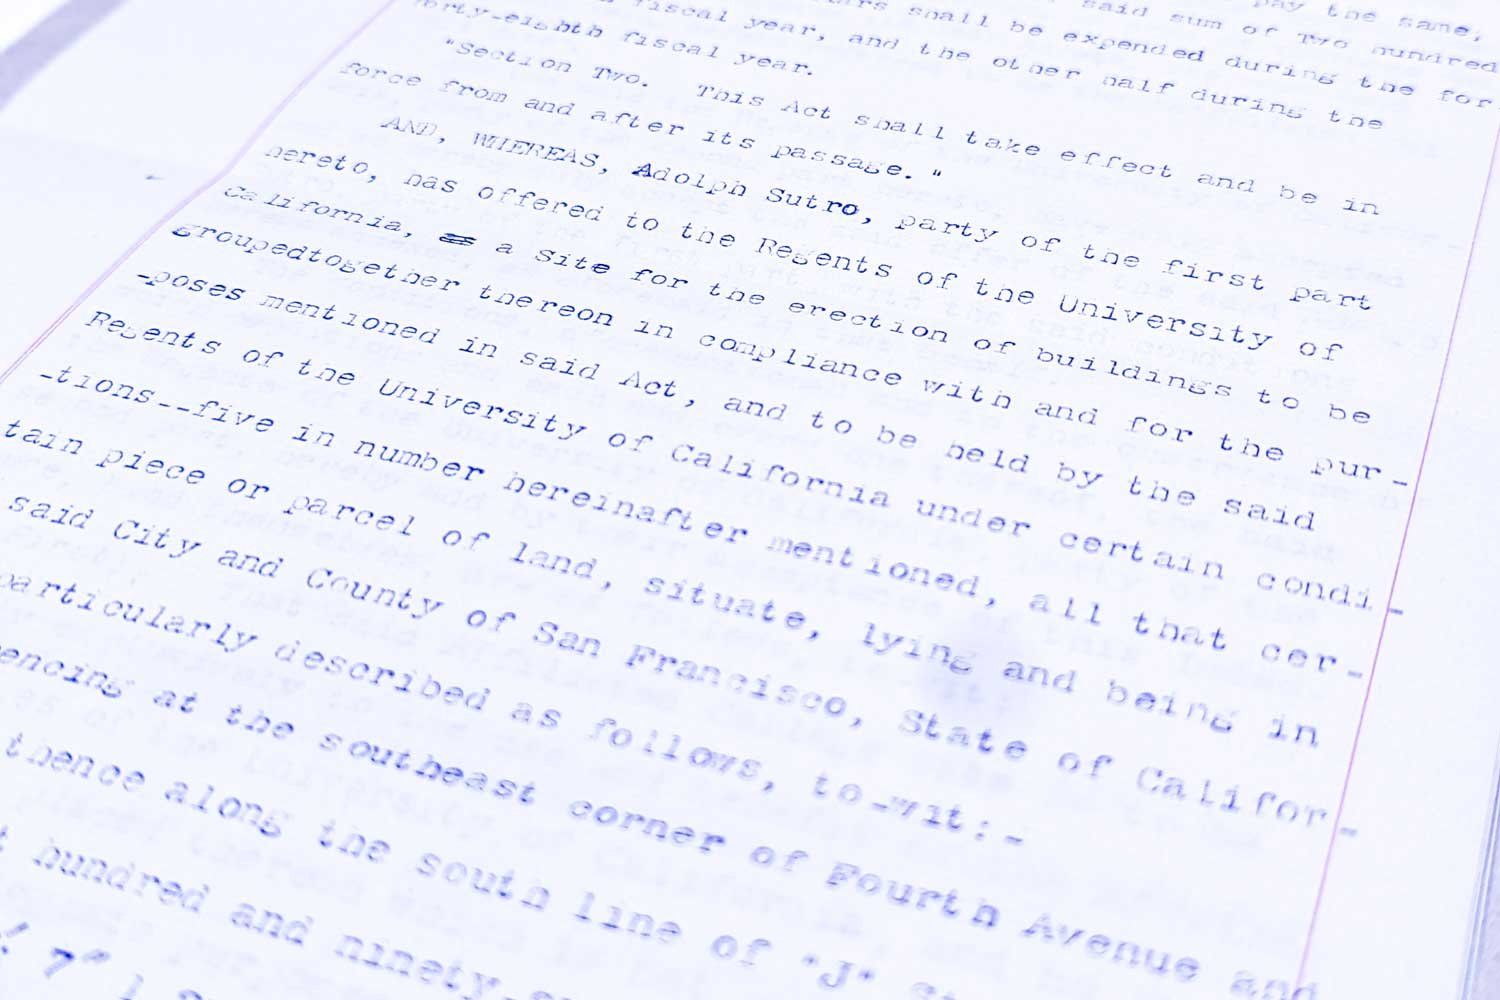 pay the same,
shall be expended during the for
said sum of Two hundred
fiscal year, and the other half during the
forty-eighth fiscal year.
"Section Two. This Act shall take effect and be in
force from and after its passage."
AND, WHEREAS, Adolph Sutro, party of the first part
hereto, has offered to the Regents of the University of
California, a Site for the erection of buildings to be
groupedtogether thereon in compliance with and for the pur-
-poses mentioned in said Act, and to be held by the said
Regents of the University of California under certain condi-
-tions--five in number hereinafter mentioned, all that cer-
tain piece or parcel of land, situate, lying and being in
said City and County of San Francisco, State of Califor-
particularly described as follows, to-wit:-
encing at the southeast corner of Fourth Avenue and
thence along the south line of "J"
hundred and ninety
7"